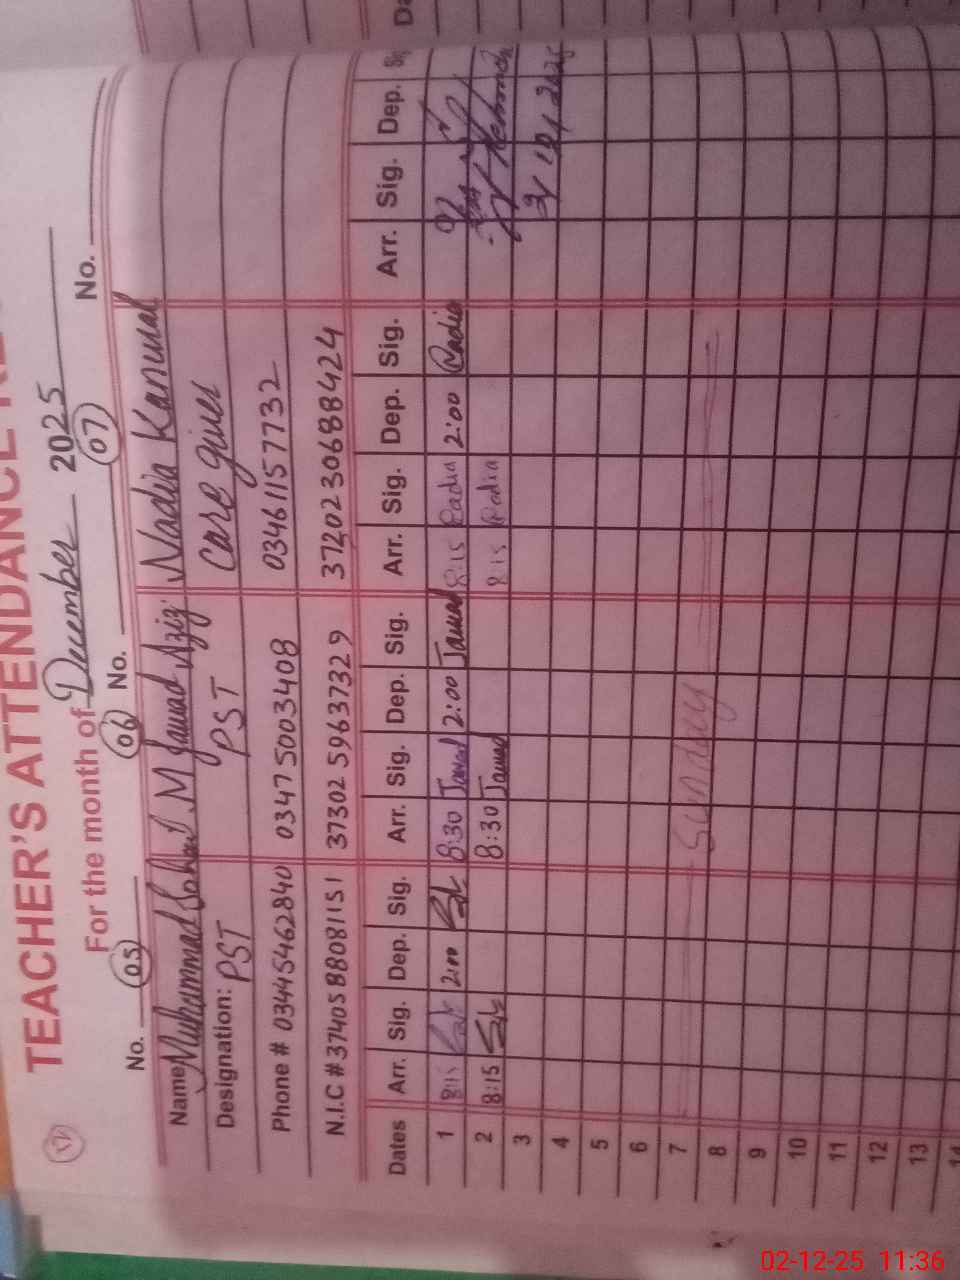 TEACHER'S ATTENDANCE
For the month of December 2025
No. 05 No. 06 No. 07 No.
Name Muhammad Sohail M Jawad Aziz Nadia Kanwal
Designation: PST PST Care giver
Phone # 03445462840 03475003408 03461157732
N.I.C # 3740588081151 3730259637329 3720230688424
Dates Arr. Sig. Dep. Sig. Arr. Sig. Dep. Sig. Arr. Sig. Dep. Sig. Arr. Sig. Dep. Sig
1 8:15 2:00 8:30 Jawad 2:00 Jawad 8:15 Nadia 2:00 Nadia
2 8:15 8:30 Jawad 8:15 Nadia
3
4
5
6
7 Sunday
8
9
10
11
12
13
14
02-12-25 11:36